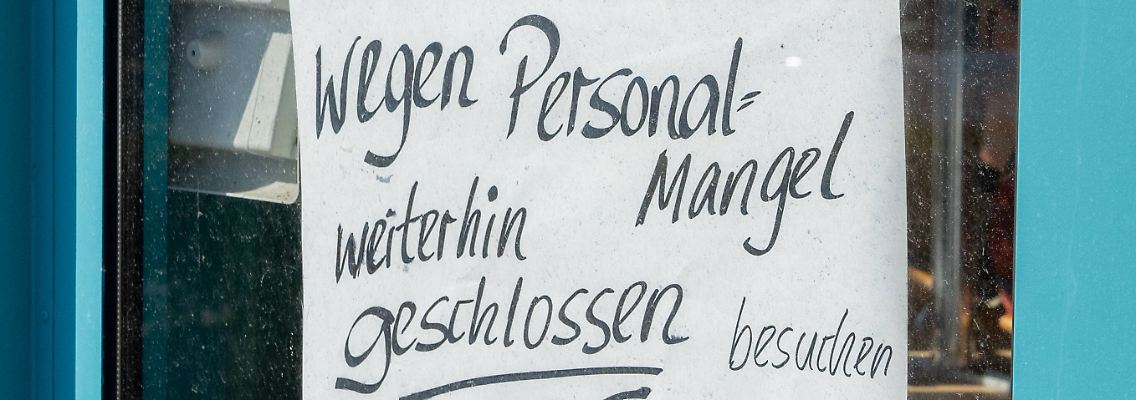 Wegen Personal=
Mangel
weiterhin
geschlossen besuchen